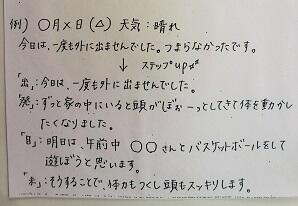 例) ○月×日(△) 天気:晴れ
今日は、一度も外に出ませんでした。つまらなかったです。
↓ ステップup
「出」:今日は、一度も外に出ませんでした。
「発」:ずっと家の中にいると頭がぼおーっとしてきて体を動かし
たくなりました。
「目」:明日は、午前中 ○○さんとバスケットボールをして
遊ぼうと思います。
「未」:そうすることで、体力もつくし頭もスッキリします。